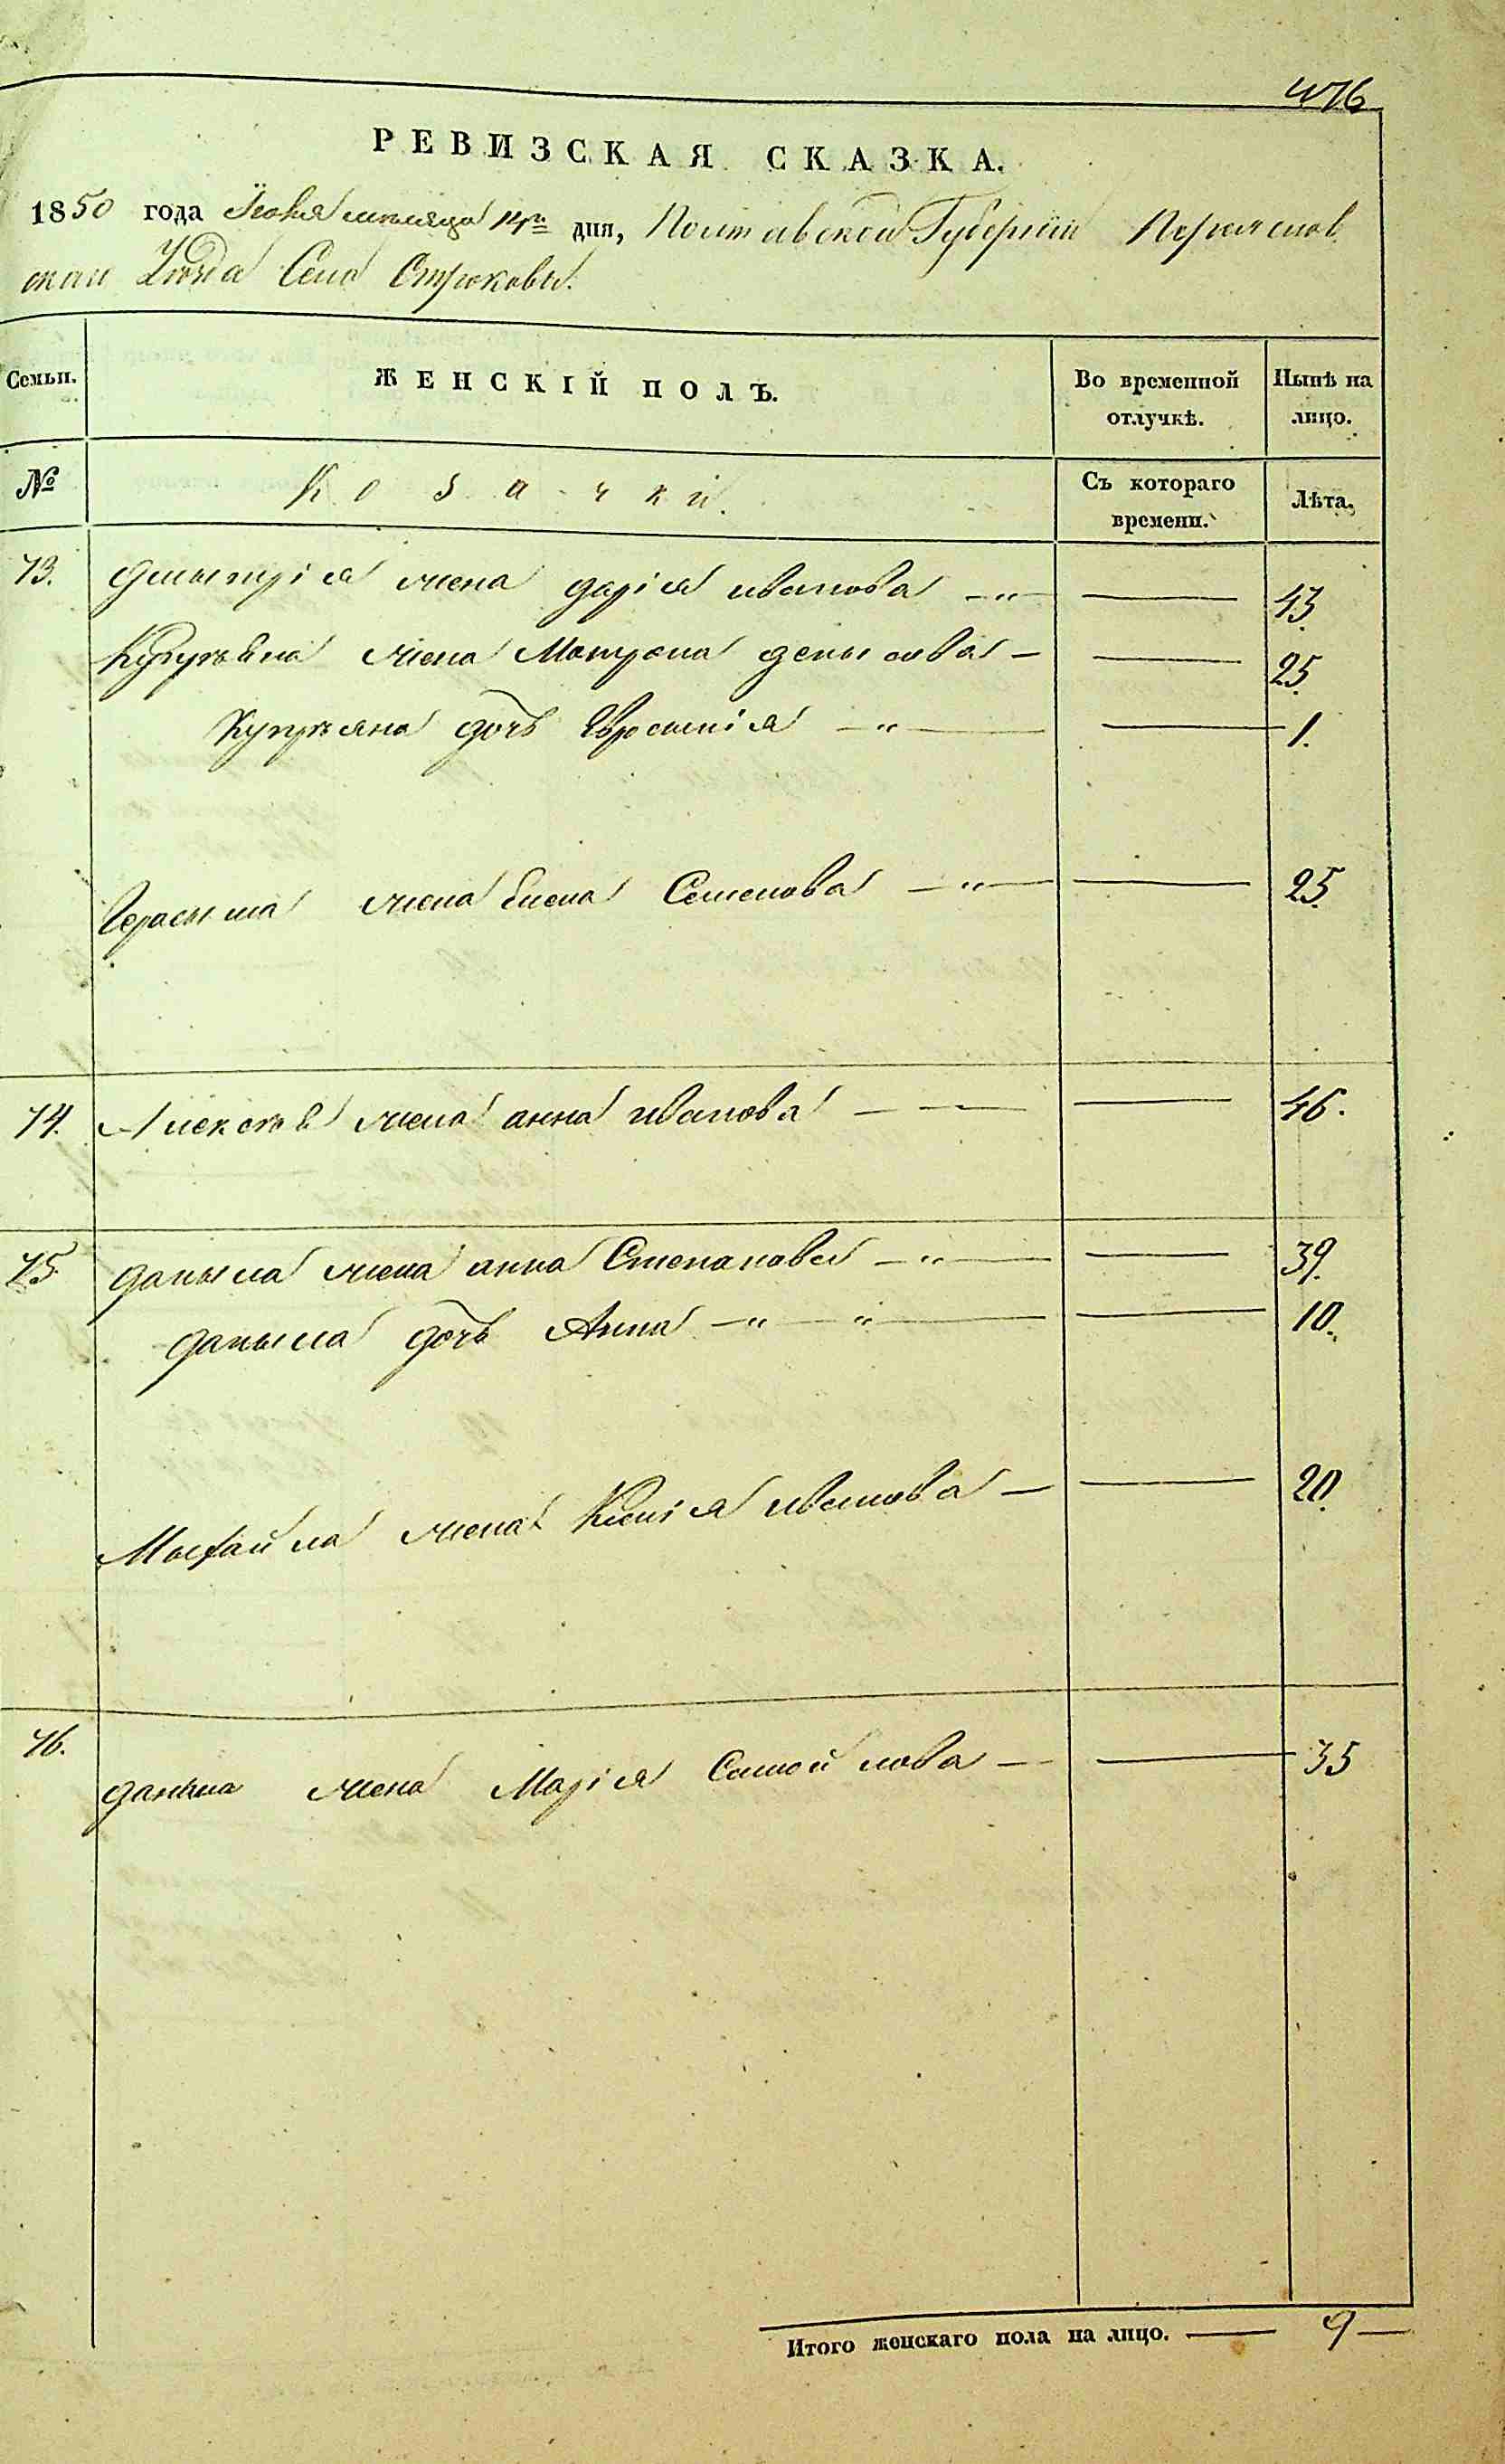 476
РЕВИЗСКАЯ СКАЗКА.
1850 года Іюня месяца 14го дня, Полтавской Губерніи Переяслов
скаго Уезда Села Строковы.
Семьи. ЖЕНСКІЙ ПОЛЪ. Во временной отлучкѣ. Нынѣ на лицо.
№ Козачки. Съ котораго времени. Лѣта.
73. Дмытрія жена Дарія Иванова — " — 43
Жена Матрона Денысова — 25
Дочь Евросинія — " — 1.
Герасыма жена Елена Семенова — " — 25.
74. Алексѣя жена Анна Иванова — — 46.
75 Даныла жена Анна Степанова — " — 39.
Даныла дочь Анна — " — " — 10.
Мыхайла жена Ксенія Иванова — 20.
76. Данила жена Марія Самойлова — 35
Итого женскаго пола на лицо. — 9 —